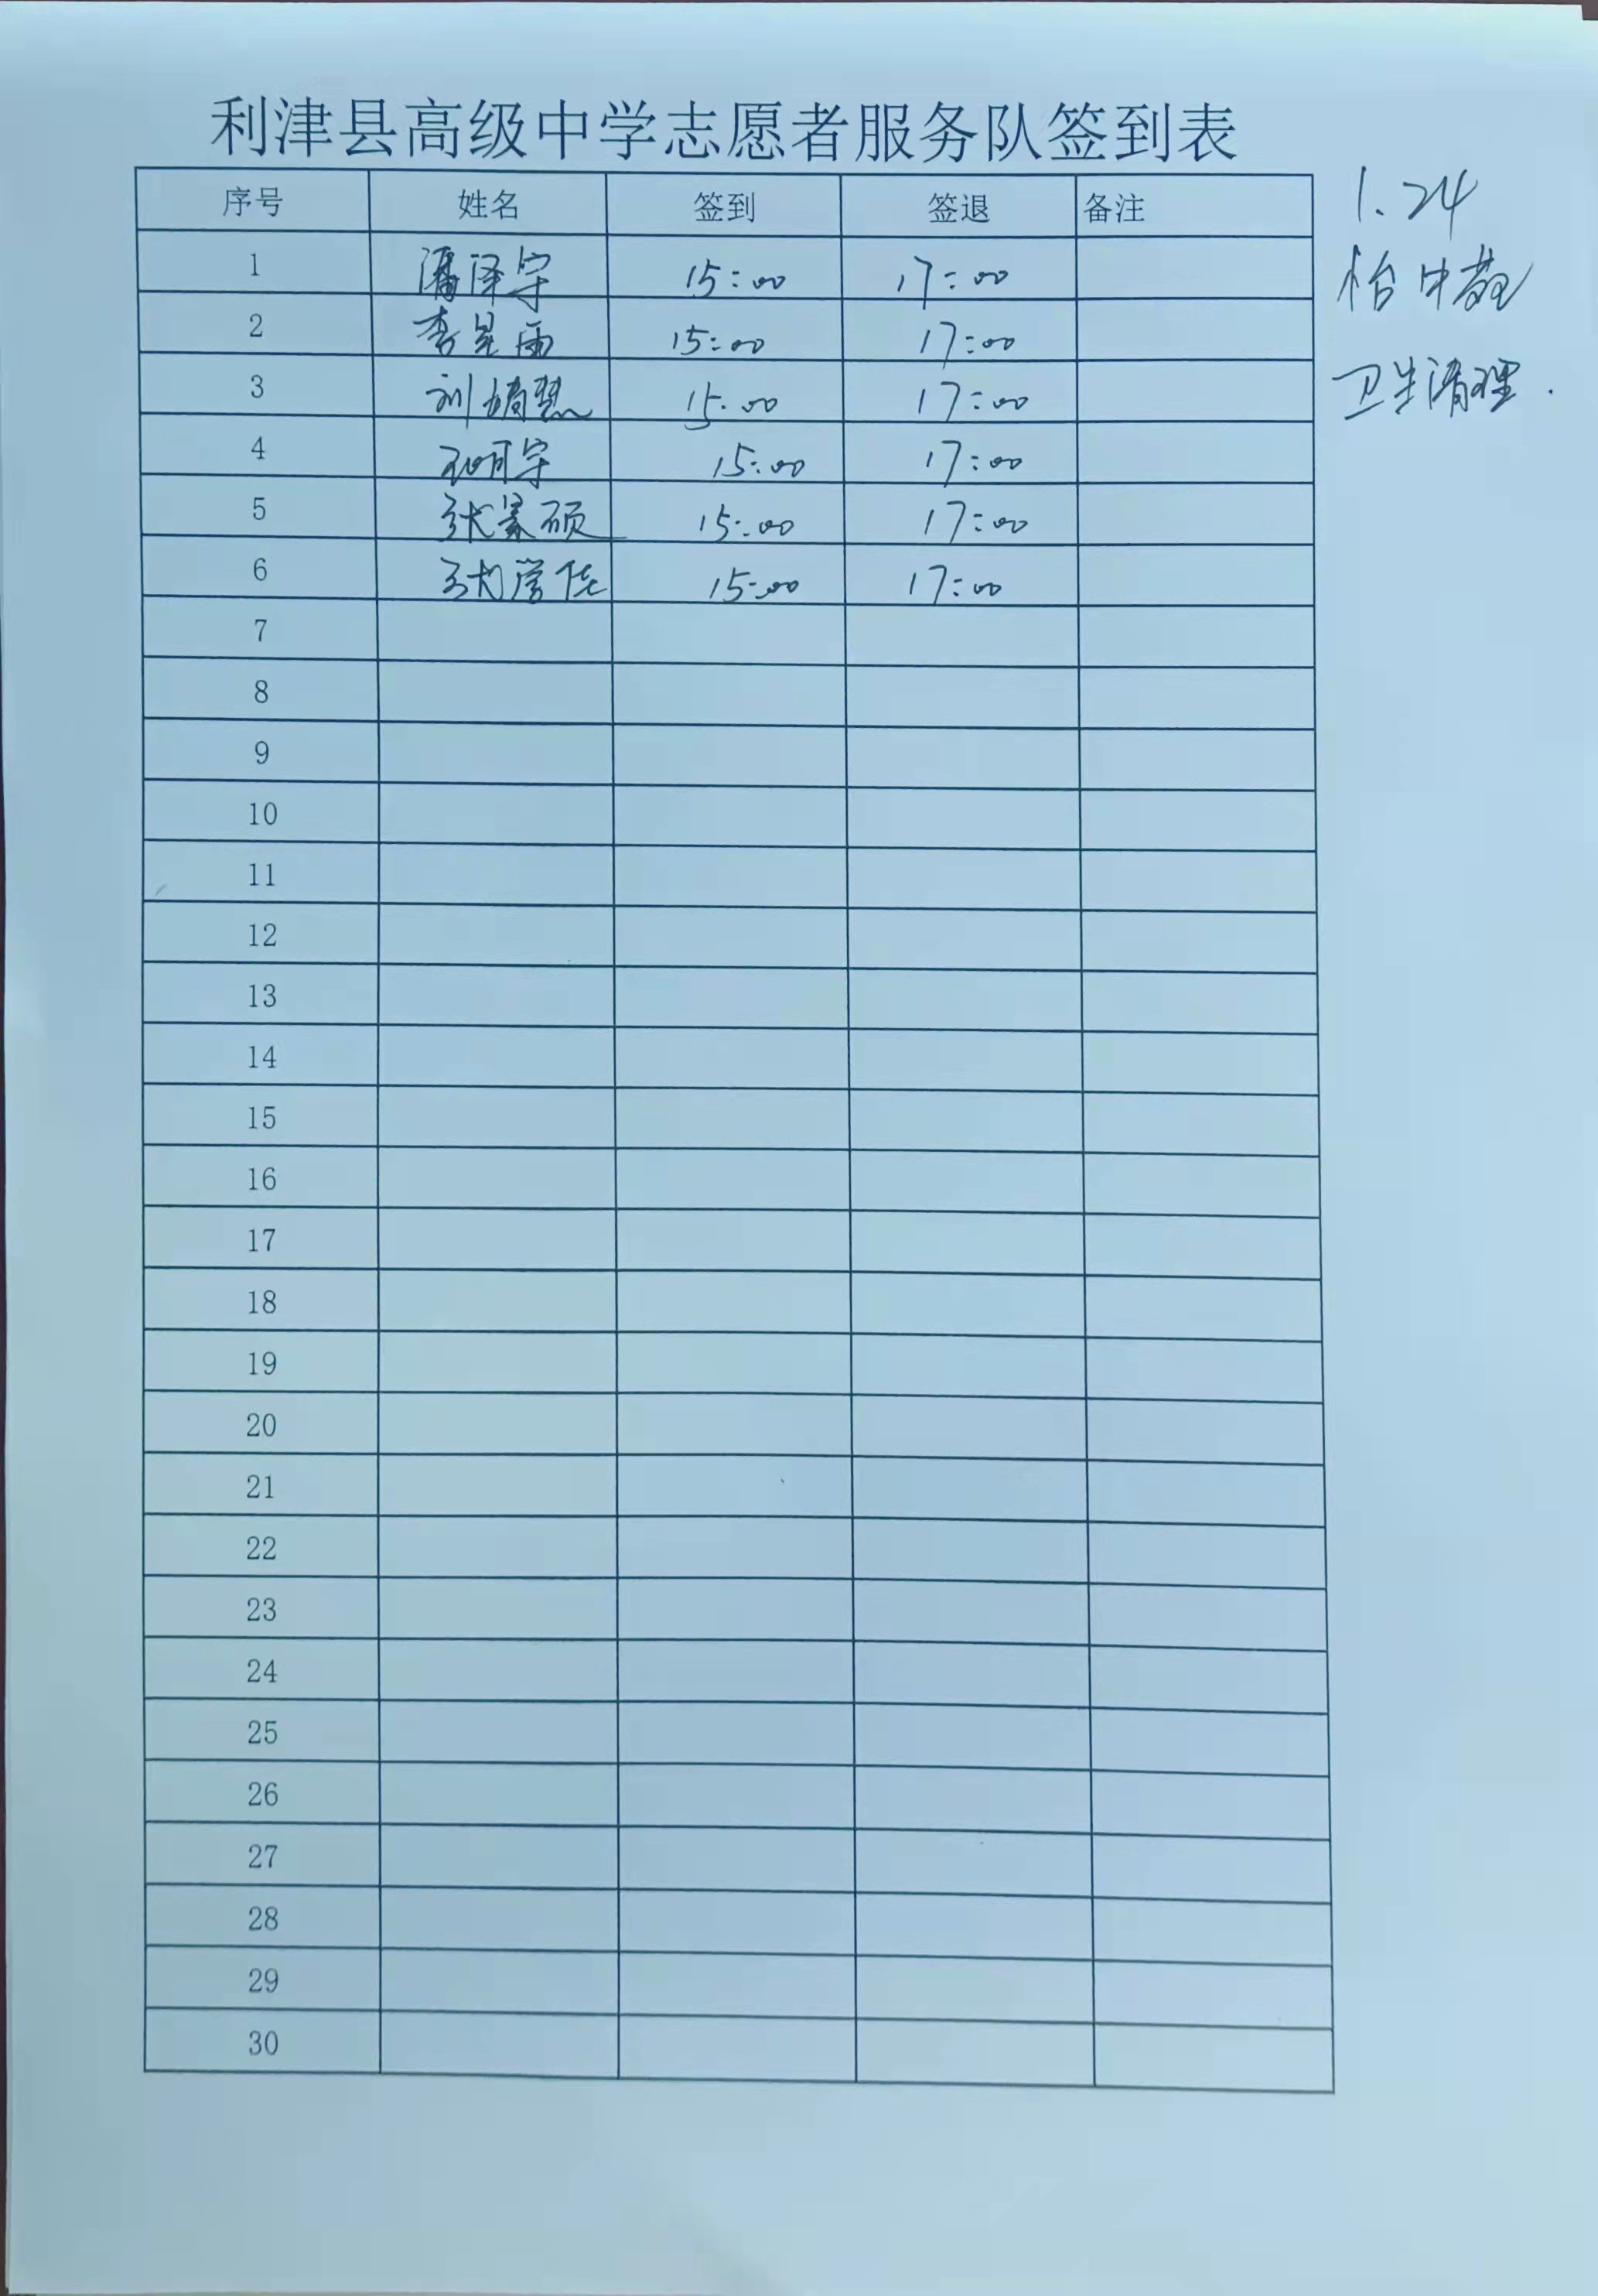 利津县高级中学志愿者服务队签到表
序号 姓名 签到 签退 备注
1 潘泽宇 15:00 17:00
2 李星雨 15:00 17:00
3 刘婧慧 15:00 17:00
4 宇 15:00 17:00
5 张景硕 15:00 17:00
6 张 佳 15:00 17:00
7
8
9
10
11
12
13
14
15
16
17
18
19
20
21
22
23
24
25
26
27
28
29
30
1.24
怡中
卫生清理.